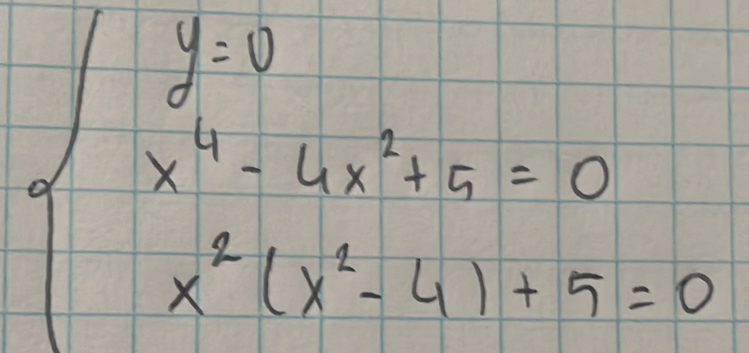 y = 0
x⁴ - 4x² + 5 = 0
x² (x² - 4) + 5 = 0